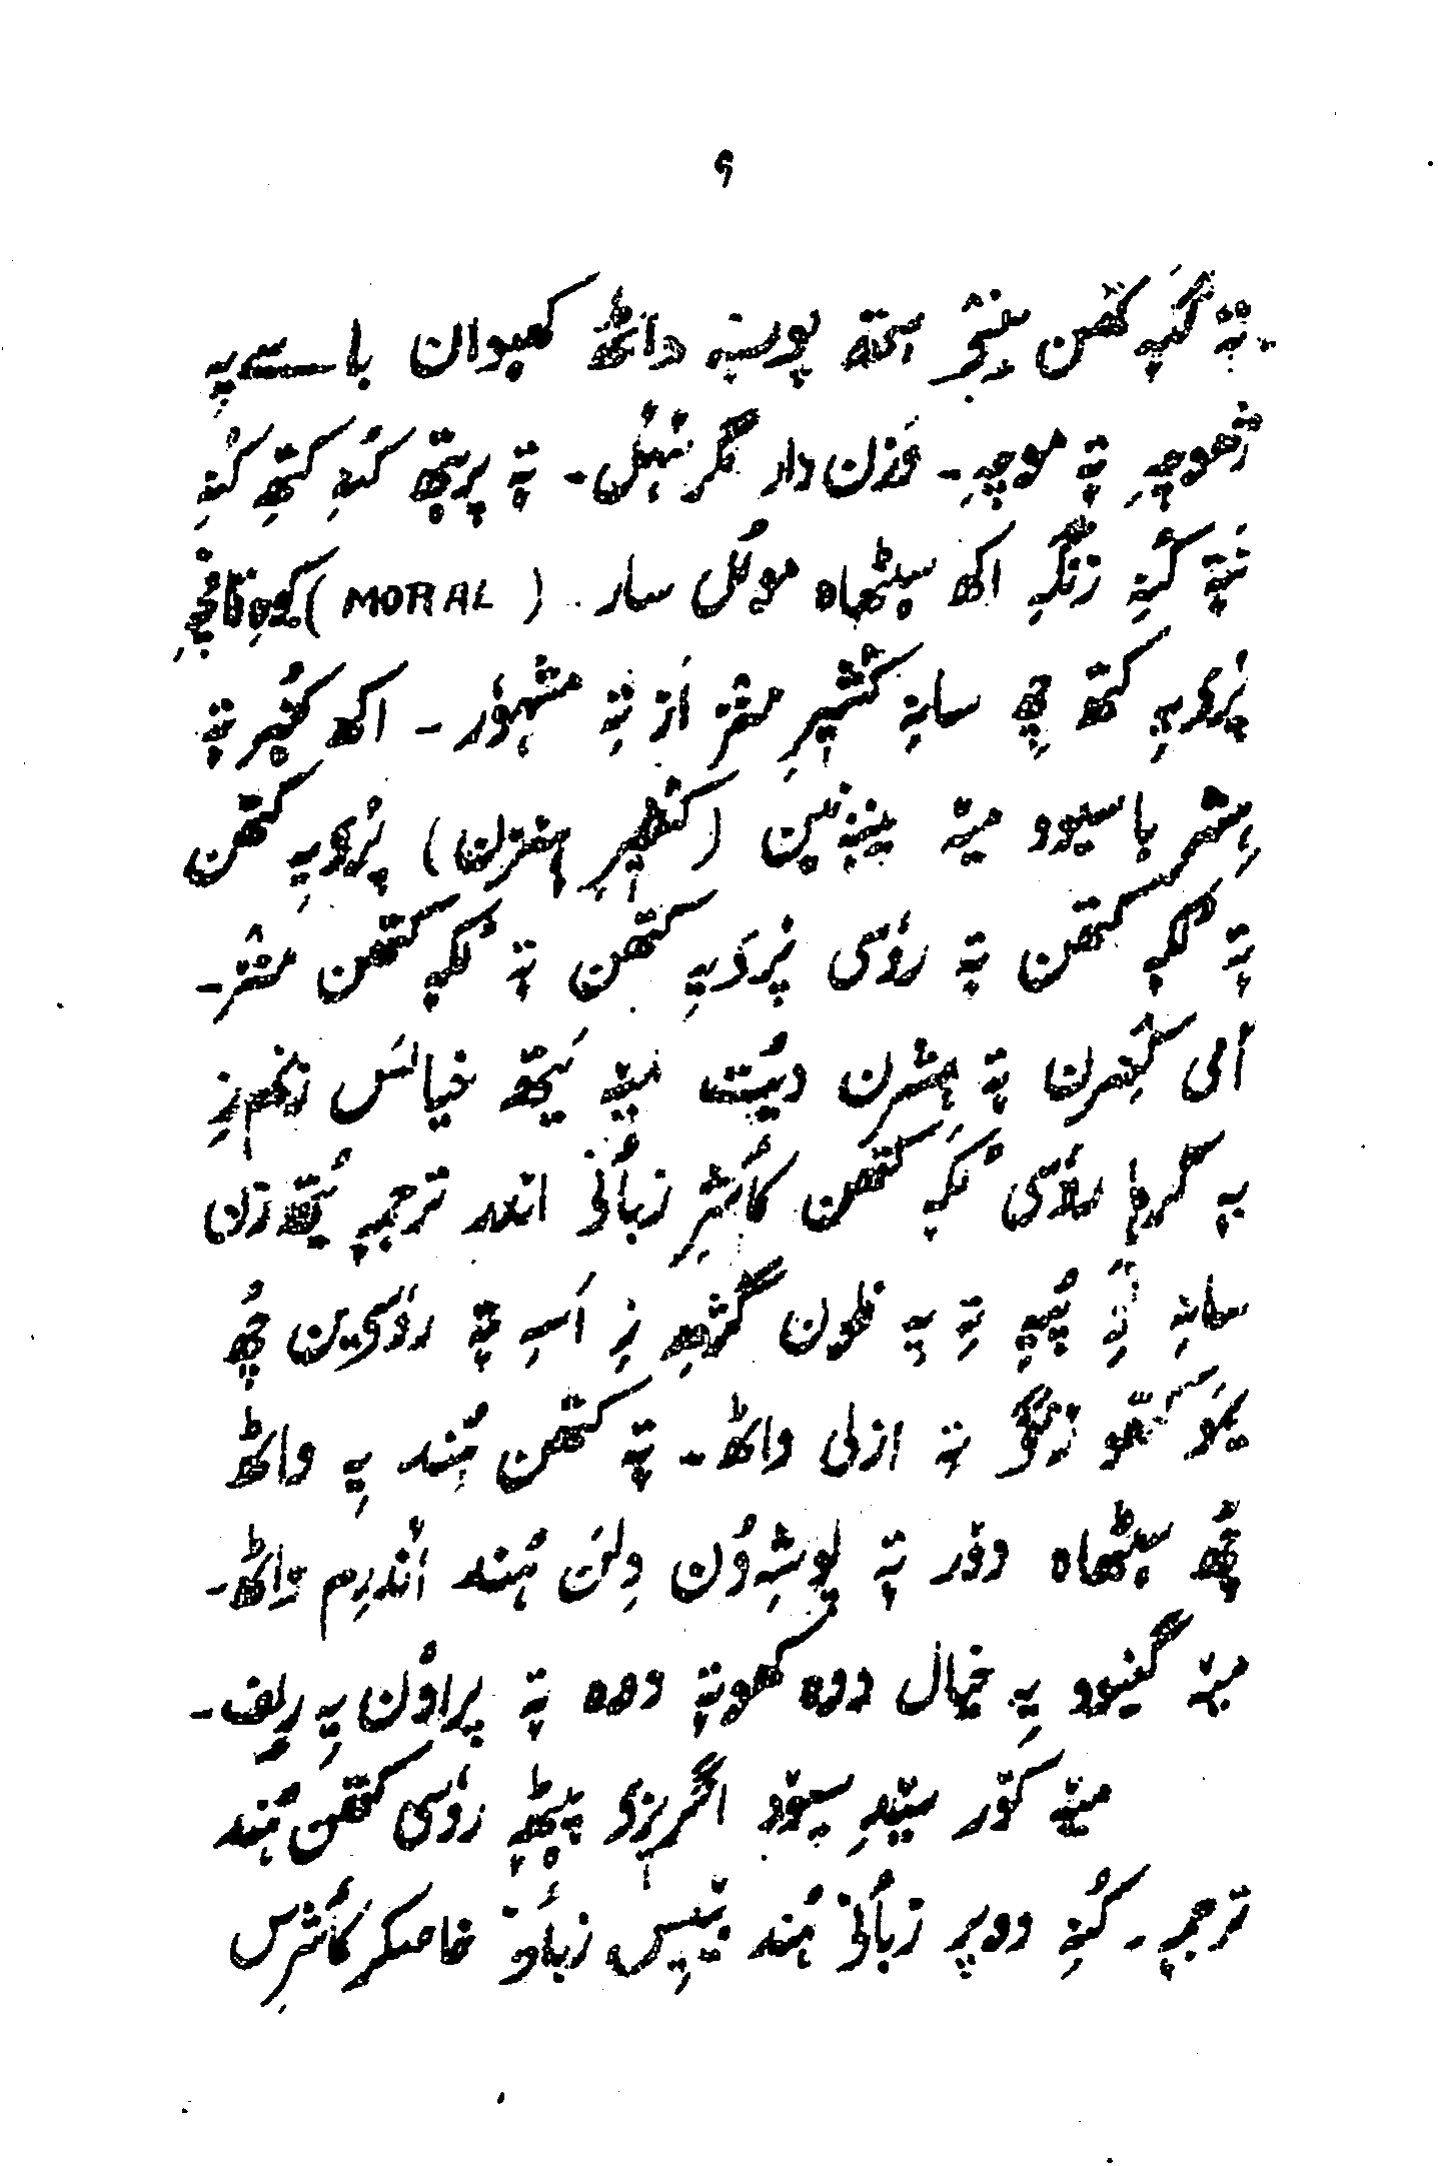 ۹
تہٕ لُکہٕ کتھن ہٕنٛز ستھ پوشہٕ واٹھ کھیوان باسے یہ
ژھوچہِ تہٕ موچہِ۔ وَزن دار مگر سٔہل۔ تہٕ پریتھ کُنہِ کتھہِ کُنہِ
نَتہٕ کُنہِ رنگہٕ اکھ سیٹھاہ مۄل سار (MORAL) کوہِ قافچہِ
پرٛوِیہِ کتھ چھِ سانہِ کٔشیرِ منٛز اَز تہِ مشہوٗر۔ اکھ کُٹھیر تہٕ
ہِشر باسیوو میٚہ پننین (کٔشیرِ ہٕنٛزن) پرٛوِیہِ کتھن
تہٕ لُکہٕ کتھن تہٕ روٗسی پرٛوِیہِ کتھن تہٕ لُکہٕ کتھن منٛز۔
اَمی کُٹھرن تہٕ ہِشرن دیُت میٚہ یَتھ خیالس زنم زِ
بہٕ کرہا روٗسی لُکہٕ کتھن کٲشرِ زبٲنؠ اندر ترجمہٕ یُتھ زن
سانہِ لُکہٕ تِہ یہِ ظون گژھِہ زِ اَسہِ تہٕ روٗسِیَن چھُ
یِمَو کتھو رنگۍ تہِ ازلی واٹھ۔ تہٕ کتھن ہُند یہِ واٹھ
چھُ سیٹھاہ دوٗر تہٕ پوشِہ وُن دِلن ہُند اَنٛدرِم واٹھ۔
میٚہ گنیوو یہِ خیال دوہ کھوتہٕ دوہ تہٕ پراوُن یہِ رِلیف۔
میٚہ کوٚر سیٚدِ سیوٚد انگریزی پیٚٹھہٕ روٗسی کتھن ہُند
ترجمہٕ۔ کُنہِ دویِر زبٲنؠ ہُند بیٚیِس زبٲنؠ خاصکر کٲشرِس